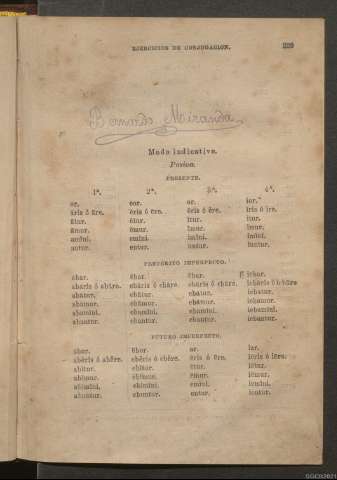 EJERCICIOS DE CONJUGACION. 229
Bernardo Miranda
Modo indicativo.
Pasiva.
PRESENTE.
1ª. 2ª. 3ª. 4ª.
or. eor. or. ior.
āris ó āre. ēris ó ēre. ĕris ó ĕre. īris ó īre.
ātur. ētur. ĭtur. ītur.
āmur. ēmur. ĭmur. īmur.
amĭni. emĭni. imĭni. imĭni.
antur. entur. untur. iuntur.
PRETÉRITO IMPERFECTO.
ābar. ēbar. ēbar. iēbar.
abāris ó abāre. ebāris ó ebāre. ebāris ó ebāre iebāris ó iebāre
abātur. ebātur. ebātur. iebatur.
abāmur. ebāmur. ebāmur. iebamur.
abamĭni. ebamini. ebamini. iebamini.
abantur. ebantur. ebantur. iebantur.
FUTURO IMPERFECTO.
ābor. ēbor. ar. iar.
abĕris ó abĕre. ebĕris ó ebĕre. ēris ó ēre. iēris ó iēre.
abĭtur. ebĭtur. ētur. iētur.
abĭmur. ebĭmur. ēmur. iēmur.
abimĭni. ebimĭni. emĭni. iemĭni.
abuntur. ebuntur. entur. ientur.